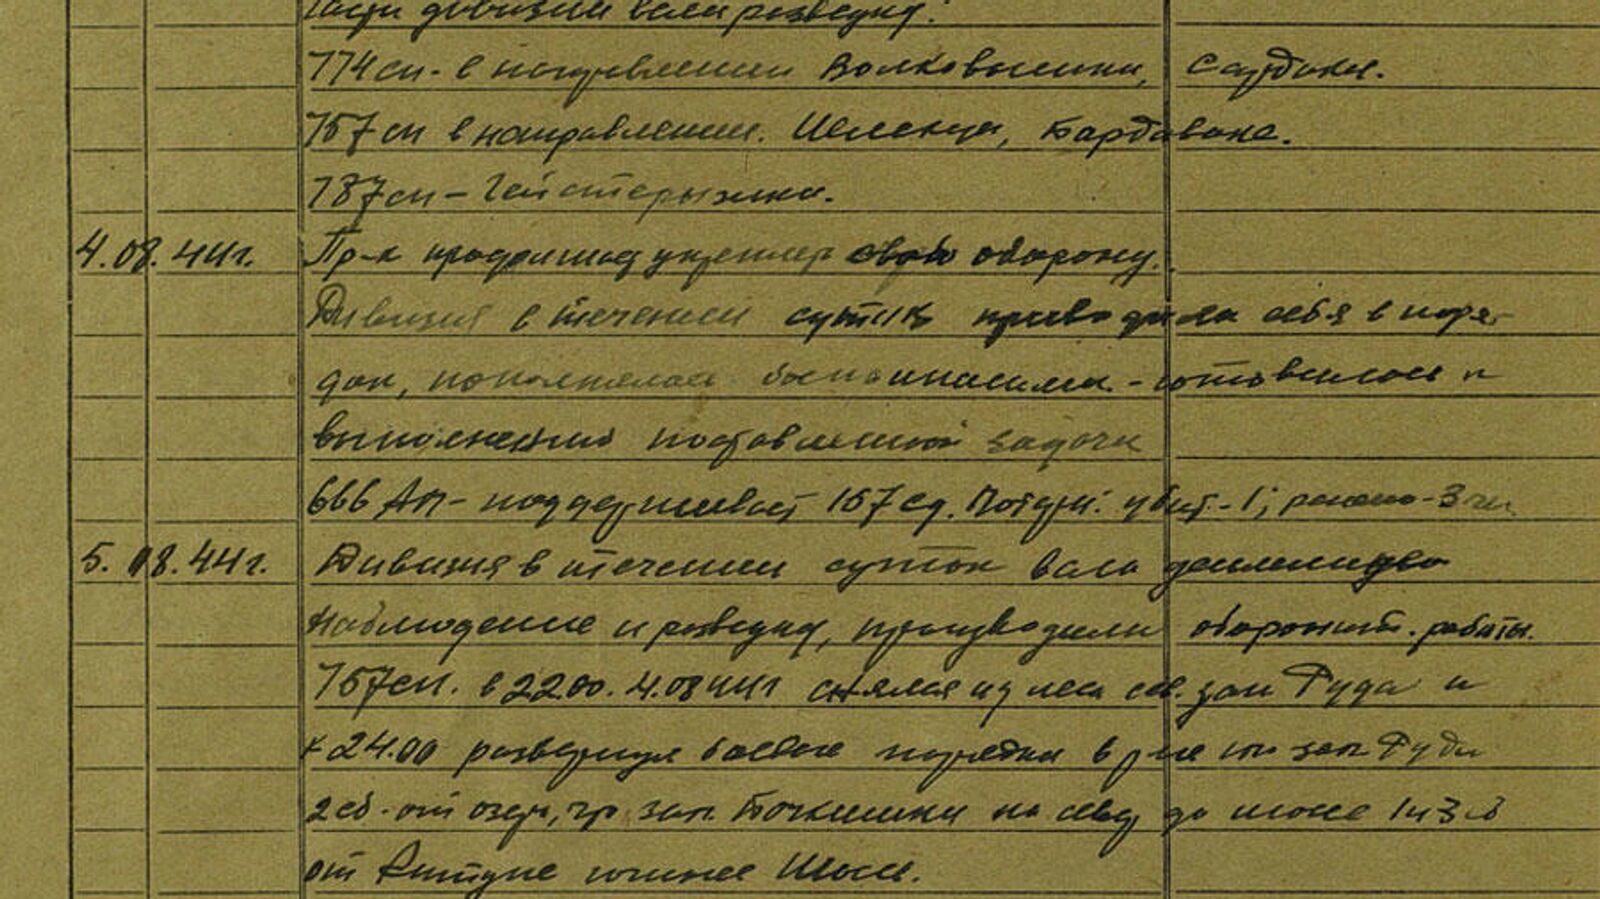 Части дивизии вели разведку:
774 сп - в направлении Волковышки,
757 сп в направлении. Шеленце, Бардовске.
787 сп -
4.08.44г. Пр-к продолжад укреплят свою оборону.
Дивизия в течении суток приводила себя в поря-
док, пополнялась боепипасами - готовилась к
выполнению поставленной задачи
666 АП - поддерживает 157 сд. Потери: убит - 1; ранено - 3 чел
5.08.44г. Дивизия в течении суток вела
наблюдение и разведку, производили оборонит. работы.
757 сп. в 22.00. 4.08.44г снялся из леса сев. зап Руда и
к 24.00 развернул боевые порядки в р-не зап Руды
2 сб - от озера, на до 1 и 3 сб
от южнее